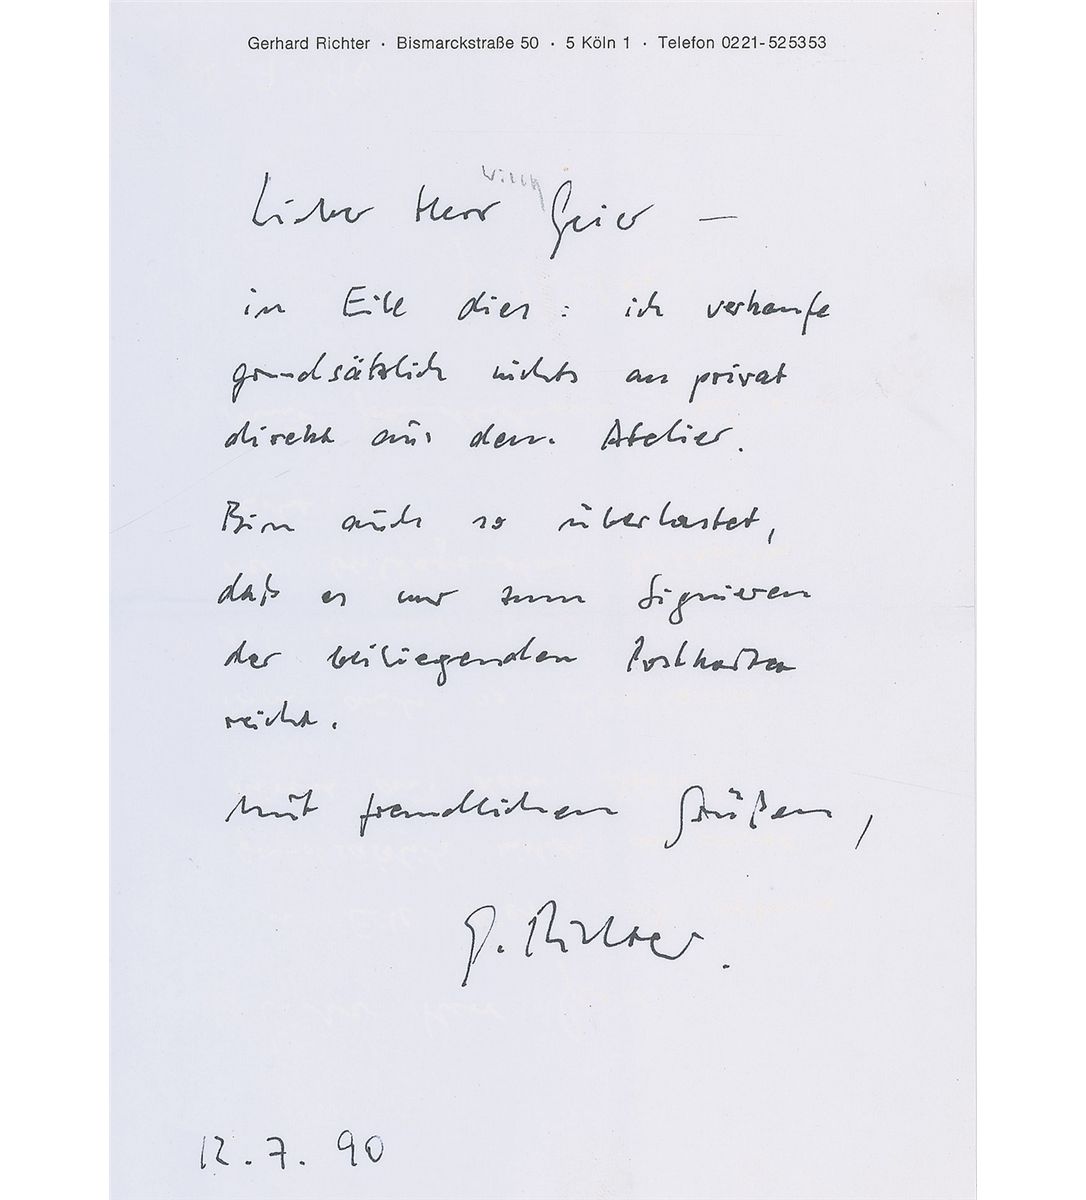 Gerhard Richter · Bismarckstraße 50 · 5 Köln 1 · Telefon 0221-525353
Willy
Lieber Herr Geier –
in Eile dies : ich verkaufe
grundsätzlich nichts an privat
direkt aus dem Atelier.
Bin auch so überlastet,
daß es nur zum Signieren
der beiliegenden Postkarten
reicht.
mit freundlichen Grüßen,
G. Richter.
12.7.90